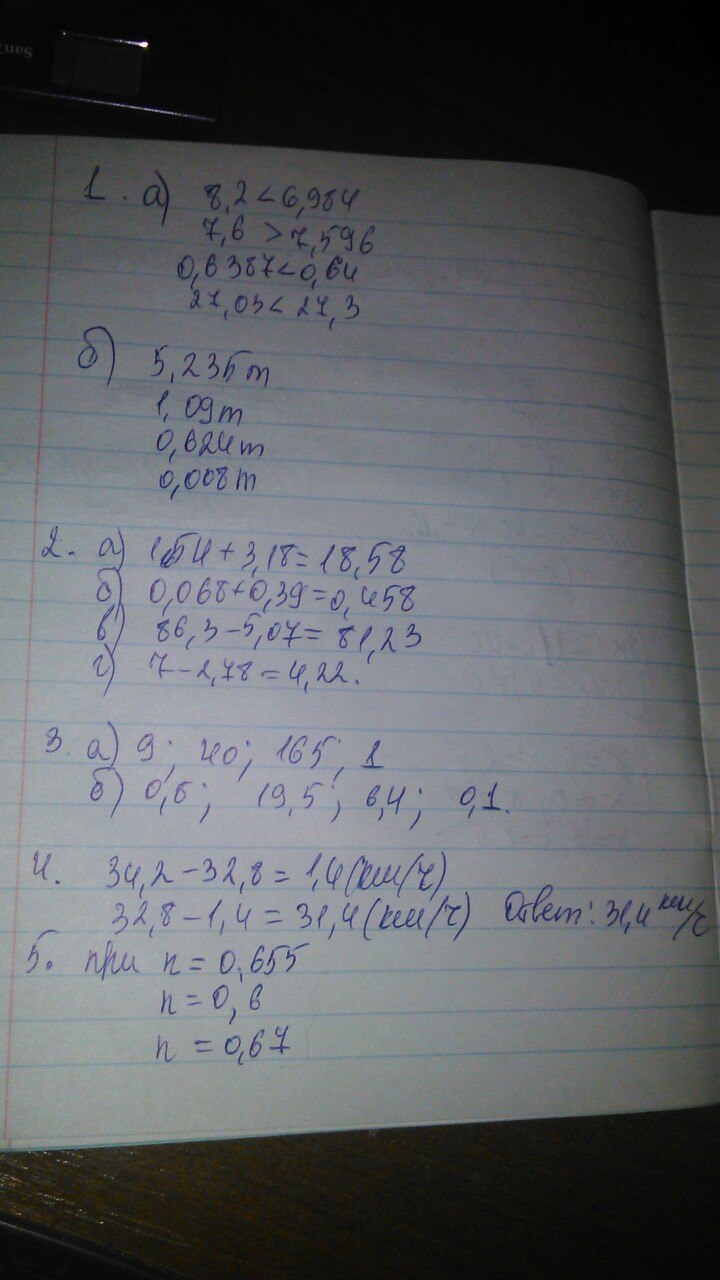 San
1. а) 8,2 < 6,984
7,6 > 7,596
0,6387 < 0,64
27,03 < 27,3
б) 5,235т
1,09т
0,624т
0,008т
2. а) 15,4 + 3,18 = 18,58
б) 0,068 + 0,39 = 0,458
в) 86,3 - 5,07 = 81,23
г) 7 - 2,78 = 4,22.
3. а) 9; 40; 165; 1
б) 0,6; 19,5; 6,4; 0,1.
4. 34,2 - 32,8 = 1,4 (км/ч)
32,8 - 1,4 = 31,4 (км/ч) Ответ: 31,4 км/ч
5. при n = 0,655
n = 0,6
n = 0,67